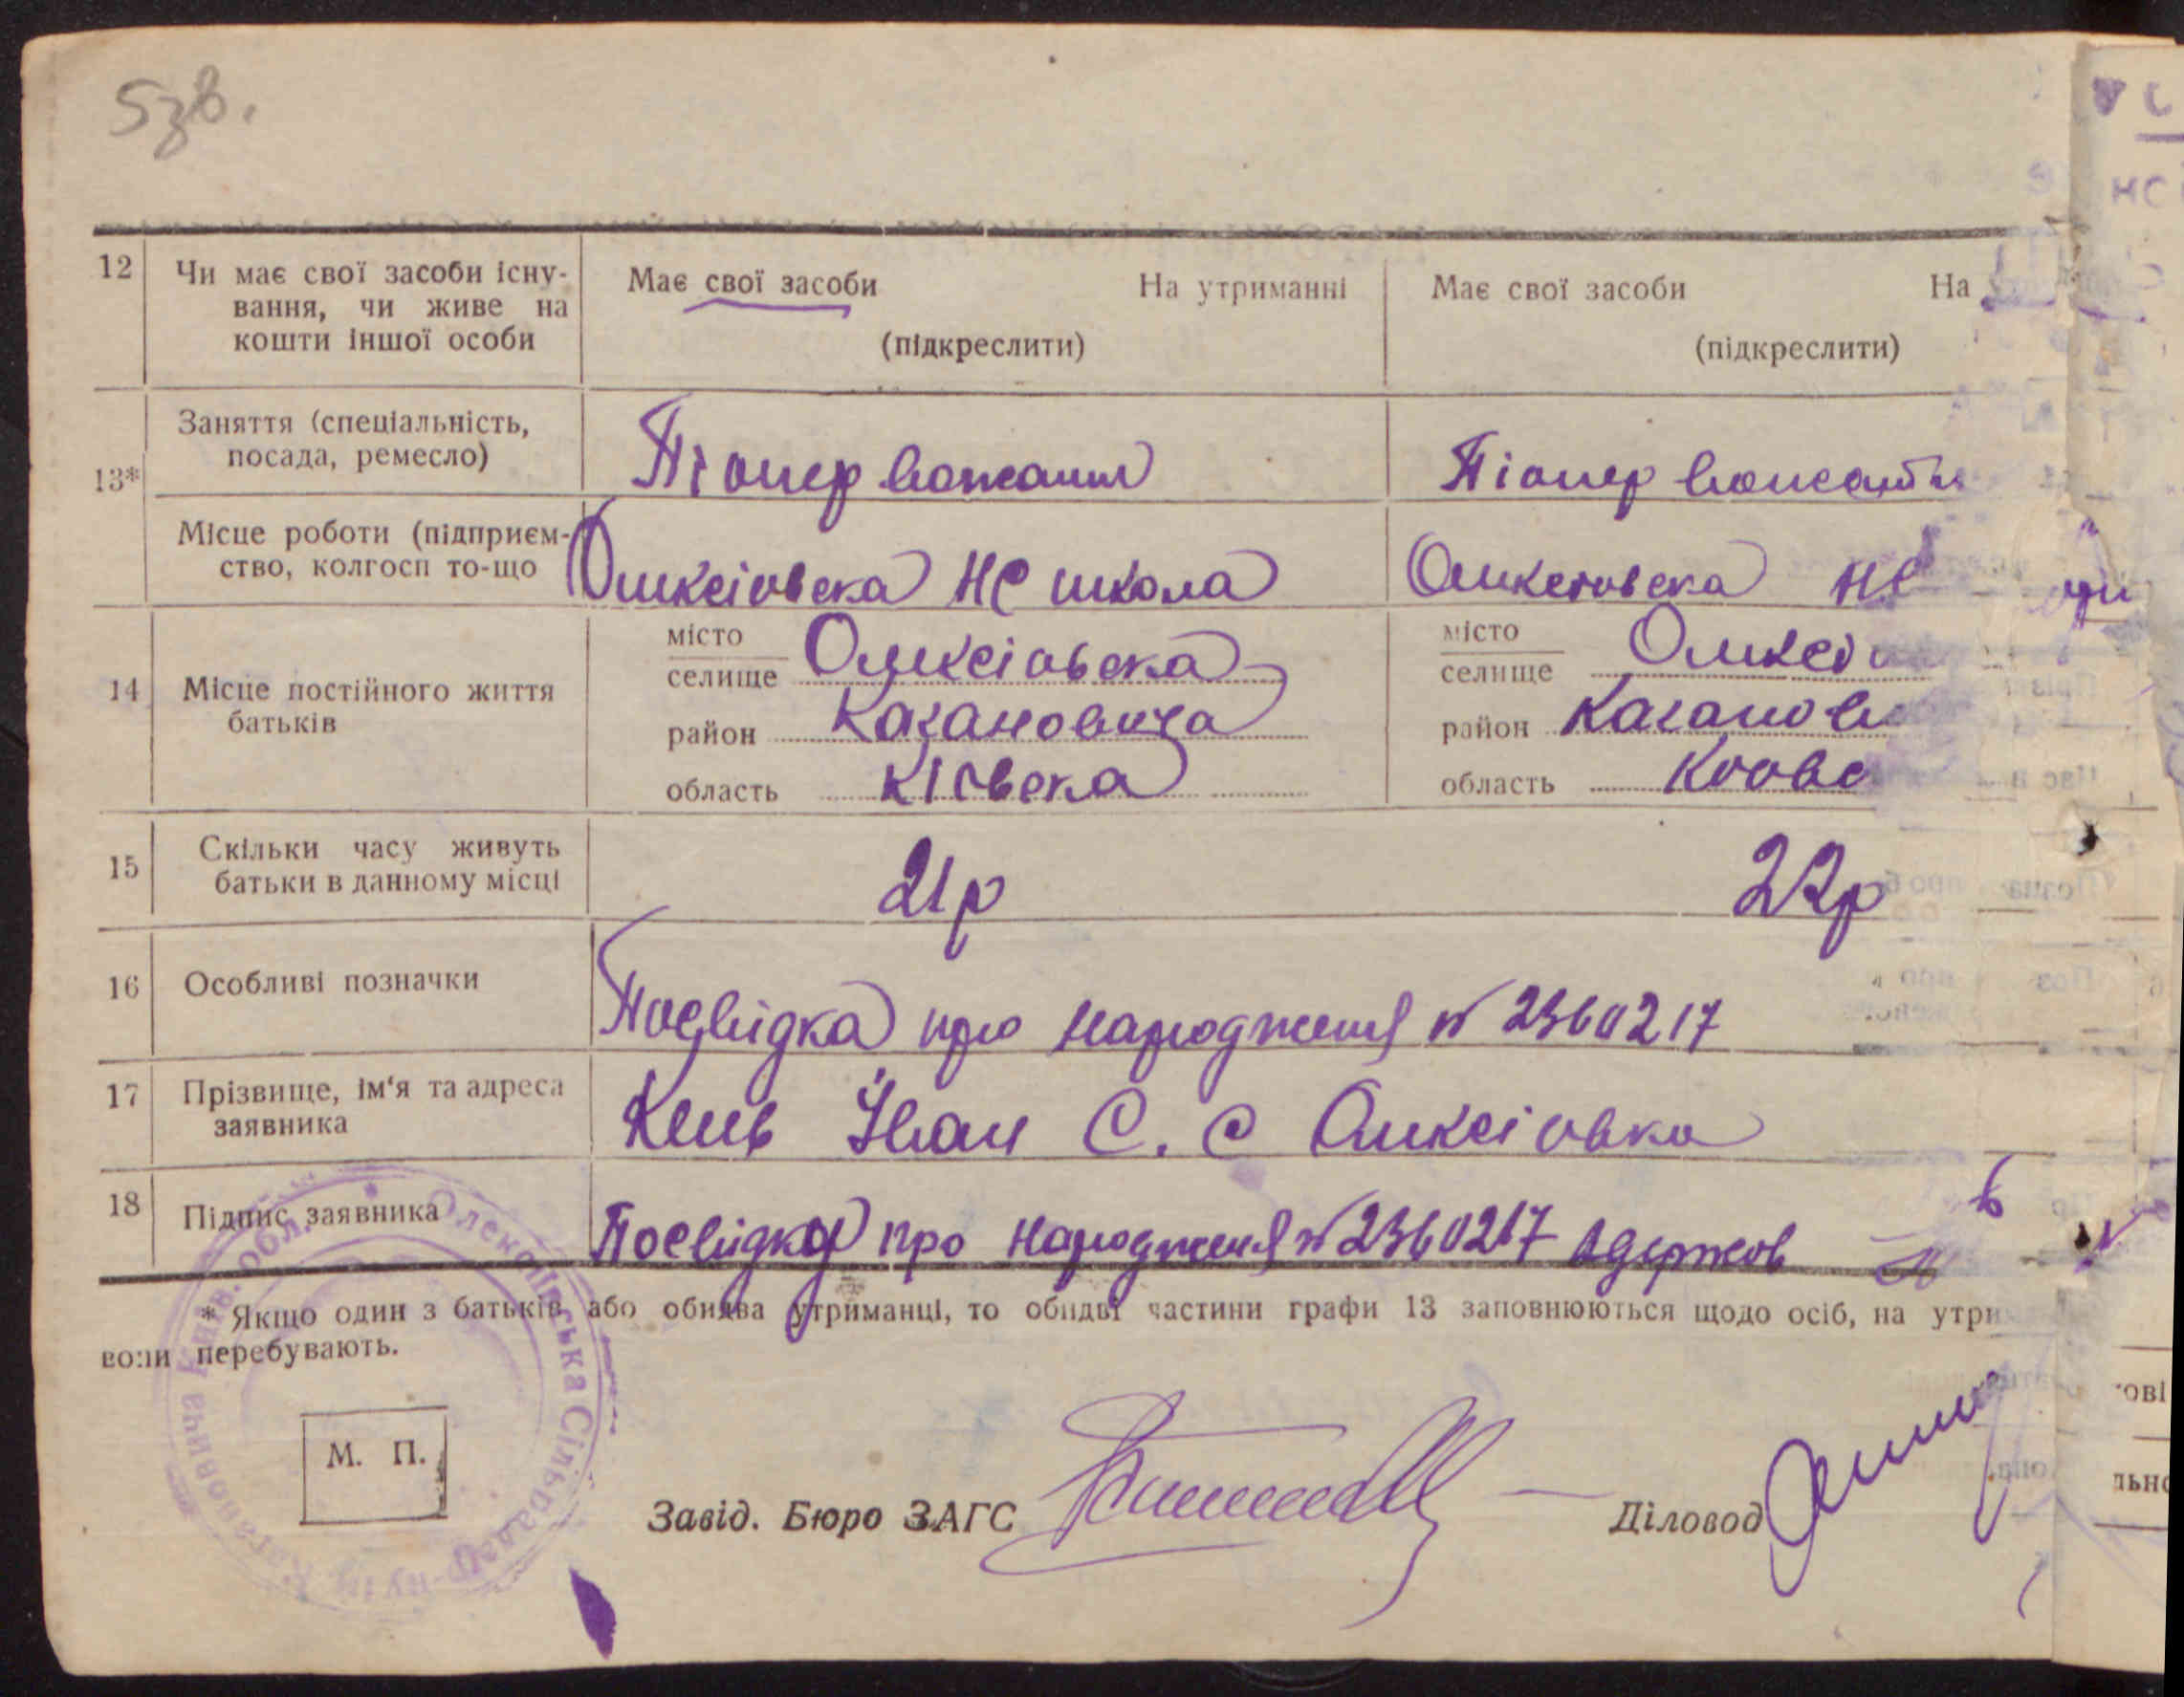 5 зв.
12 Чи має свої засоби існу-
вання, чи живе на
кошти іншої особи
Має свої засоби На утриманні
(підкреслити)
Має свої засоби На
(підкреслити)
13*
Заняття (спеціальність,
посада, ремесло)
Піонер вожатий
Піонер вожатий
Місце роботи (підприєм-
ство, колгосп то-що
Оликсіовска НС школа
Оликсіовска НС
14 Місце постійного життя
батьків
місто
селище Оликсіовска
район Кагановича
область Кіовска
місто
селище
район
область
15 Скільки часу живуть
батьки в данному місці
21р
22р
16 Особливі позначки
Посвідка про народженя № 2360217
17 Прізвище, ім'я та адреса
заявника
Іван С. с Оликсіовка
18 Підпис заявника
Посвідка про народженя № 2360217 Одержов
* Якщо один з батьків або обидва утриманці, то обидві частини графи 13 заповнюються щодо осіб, на утри
вони перебувають.
М. П.
Олексіївська Сільрада
Кагановича Київ. обл.
Завід. Бюро ЗАГС
Діловод